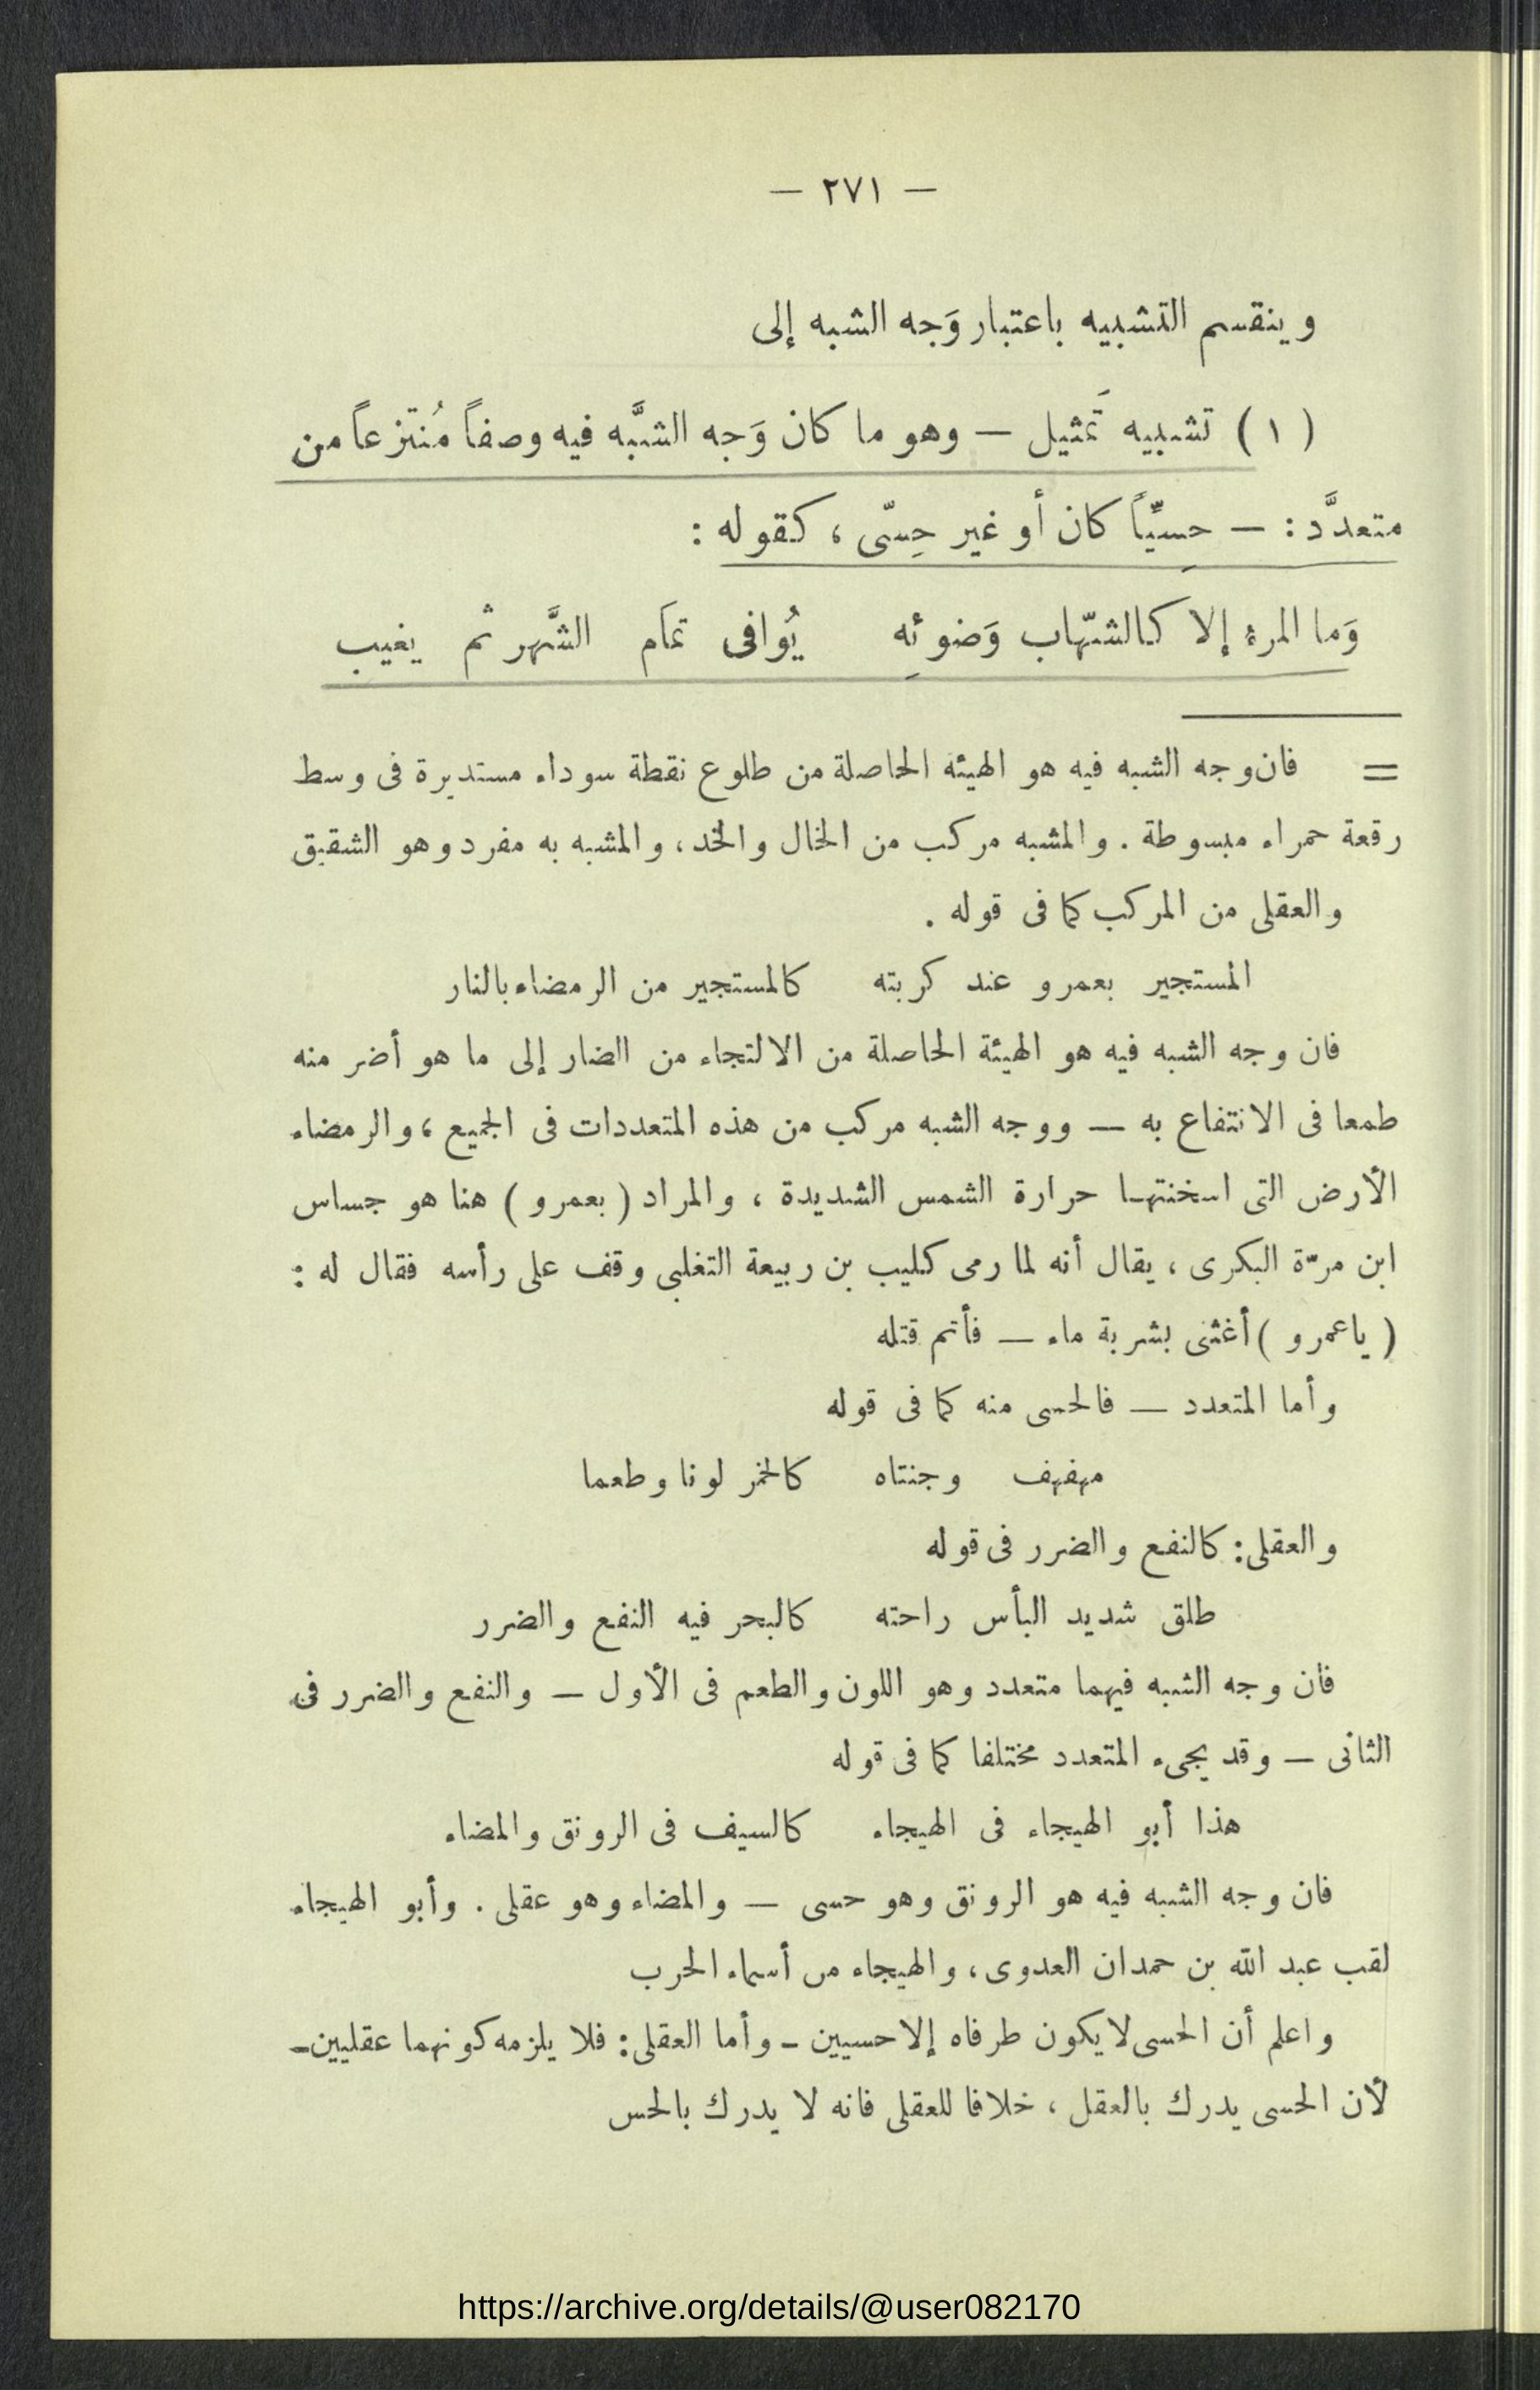 — ٢٧١ —
وينقسم التشبيه باعتبار وَجه الشبه إلى
( ١ ) تشبيه تَمثيل — وهو ما كان وَجه الشبَّه فيه وصفاً مُنتزعاً من
متعدَّد : — حِسيِّاً كان أو غير حِسّى ، كقوله :
وَما المرءُ إلا كالشّهاب وَضوئِه يُوافى تمَام الشَّهر ثم يغيب
= فان وجه الشبه فيه هو الهيئه الحاصلة من طلوع نقطة سوداء مستديرة فى وسط
رقعة حمراء مبسوطة . والمشبه مركب من الخال والخد ، والمشبه به مفرد وهو الشقيق
والعقلى من المركب كما فى قوله .
المستجير بعمرو عند كربته كالمستجير من الرمضاء بالنار
فان وجه الشبه فيه هو الهيئة الحاصلة من الالتجاء من الضار إلى ما هو أضر منه
طمعا فى الانتفاع به — ووجه الشبه مركب من هذه المتعددات فى الجميع ، والرمضاء
الأرض التى اسخنتها حرارة الشمس الشديدة ، والمراد ( بعمرو ) هنا هو جساس
ابن مرّة البكرى ، يقال أنه لما رمى كليب بن ربيعة التغلبى وقف على رأسه فقال له :
( ياعمرو ) أغثنى بشربة ماء — فأتم قتله
وأما المتعدد — فالحسى منه كما فى قوله
مهفهف وجنتاه كالخمر لونا وطعما
والعقلى : كالنفع والضرر فى قوله
طلق شديد البأس راحته كالبحر فيه النفع والضرر
فان وجه الشبه فيهما متعدد وهو اللون والطعم فى الأول — والنفع والضرر فى
الثانى — وقد يجىء المتعدد مختلفا كما فى قوله
هذا أبو الهيجاء فى الهيجاء كالسيف فى الرونق والمضاء
فان وجه الشبه فيه هو الرونق وهو حسى — والمضاء وهو عقلى . وأبو الهيجاء
لقب عبد الله بن حمدان العدوى ، والهيجاء من أسماء الحرب
واعلم أن الحسى لا يكون طرفاه إلا حسيين - وأما العقلى : فلا يلزمه كونهما عقليين -
لأن الحسى يدرك بالعقل ، خلافا للعقلى فانه لا يدرك بالحس
https://archive.org/details/@user082170